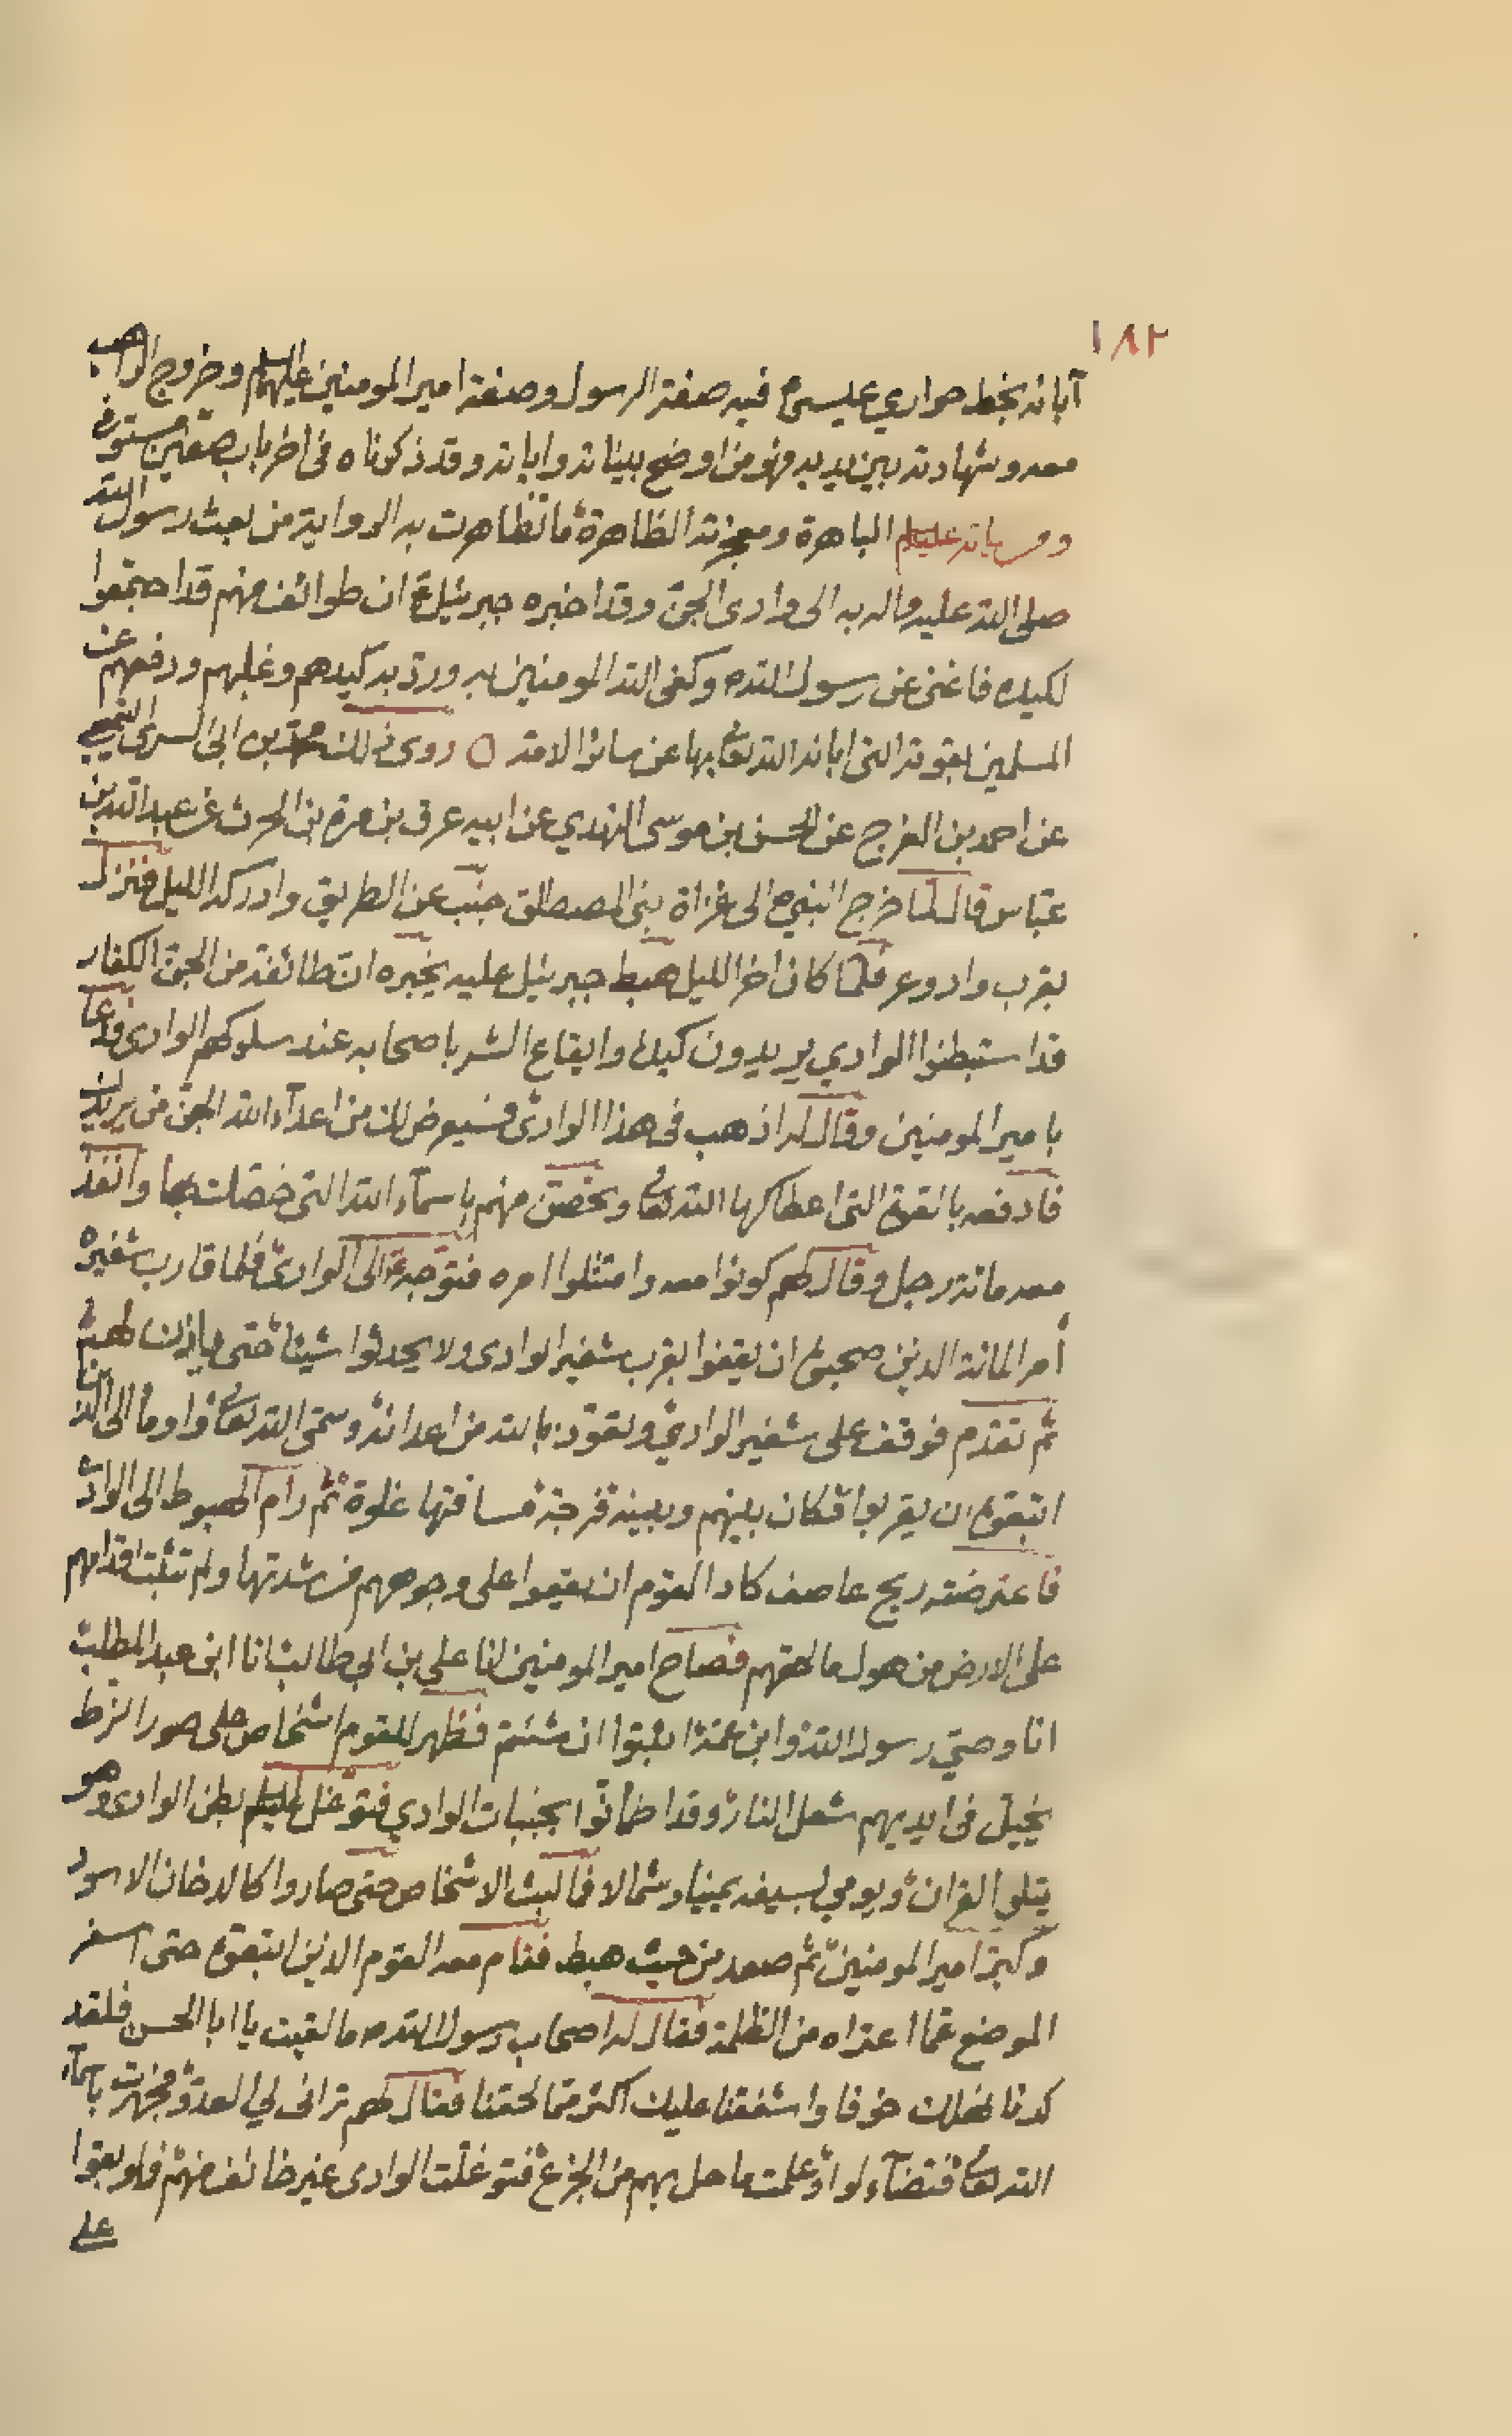 ١٨٢
آبائه بخط حواري عيسى ع فيه صفة الرسول وصفة امير المومنين عليهما السلم وخروج الراهب
معه وشهادته بين يديه فهو من اوضح بيناته واياته وقد ذكرناه في اخر باب صفين مستوفى
ومن اياته عليه السلم الباهرة ومعجزته الظاهرة ما تظاهرت به الرواية من بعث رسول الله
صلى الله عليه واله به الى وادى الجن وقد اخبره جبرئيل ع ان طوائف منهم قد اجتمعوا
لكيده فاغنى عن رسول الله ص وكفى الله المومنين به ورد به كيدهم وغلبهم ودفعهم عن
المسلمين بقوته التى ابانه الله تعالى بها عن سائر الامة ○ روى ذلك محمد بن ابى السرى التميمي
عن احمد بن الفرج عن الحسن بن موسى النهدي عن ابيه عن وبرة بن الحرث عن عبد الله بن
عباس قال لما خرج النبي ص الى غزاة بنى المصطلق جنب عن الطريق وادركه الليل فنزل
بقرب واد وعر فلما كان اخر الليل هبط جبرئيل عليه يخبره ان طائفة من الجن الكفار
قد استبطنوا الوادي يريدون كيده وايقاع الشر باصحابه عند سلوكهم الوادى فدعا
بامير المومنين وقال له اذهب فى هذا الوادى فسيعرض لك من اعداء الله الجن من يريدك
فادفعه بالقوة التى اعطاكها الله تعالى وتحصن منهم باسماء الله التى خصك بها وانفذ
معه مائة رجل وقال لهم كونوا معه وامتثلوا امره فتوجه ع الى الوادى فلما قارب شفيره
أمر المائة الذين صحبوه ان يقفوا بقرب شفير الوادى ولا يحدثوا شيئا حتى ياذن لهم
ثم تقدم فوقف على شفير الوادي وتعوذ بالله من اعدائه وسمى الله تعالى واومأ الى الذين
اتبعوه ان يقربوا فكان بينهم وبينه فرجة مسافتها غلوة ثم رام الهبوط الى الوادى
فاعترضته ريح عاصف كاد القوم ان يقعوا على وجوههم من شدتها ولم تثبت اقدامهم
على الارض من هول ما لحقهم فصاح امير المومنين انا علي بن ابي طالب انا ابن عبد المطلب
انا وصي رسول الله وابن عمه اثبتوا ان شئتم فظهر للقوم اشخاص على صور الزط
يخيل فى ايديهم شعل النار وقد اطمانوا بجنبات الوادي فتوغل عليه السلم بطن الوادى وهو
يتلو القران ويومي بسيفه يمينا وشمالا فما لبث الاشخاص حتى صاروا كالدخان الاسود
وكبر امير المومنين ثم صعد من حيث هبط فقام معه القوم الذين اتبعوه حتى اسفر
الموضع عما اعتراه من الظلمة فقال له اصحاب رسول الله ص ما لقيت يا ابا الحسن فلقد
كدنا نهلك خوفا واشفقنا عليك اكثر مما لحقنا فقال لهم تراءى لي العدو فجهرت باسماء
الله تعالى فتضاءلوا وعلمت ما حل بهم من الجزع فتوغلت الوادى غير خائف منهم فلو بقوا
على